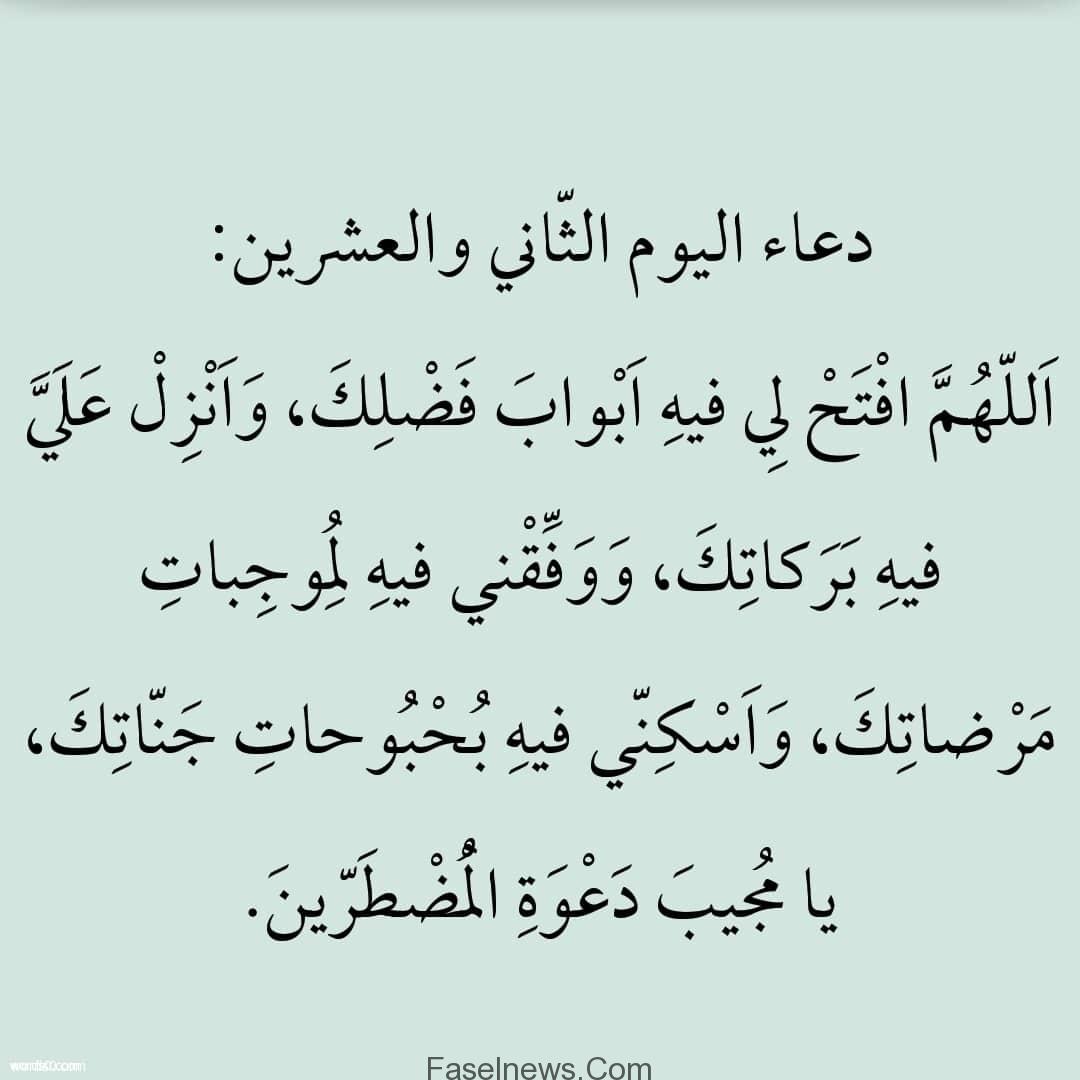 دعاء اليوم الثّاني والعشرين:
اَللّهُمَّ افْتَحْ لِي فيهِ اَبْوابَ فَضْلِكَ، وَاَنْزِلْ عَلَيَّ
فيهِ بَرَكاتِكَ، وَوَفِّقْني فيهِ لِمُوجِباتِ
مَرْضاتِكَ، وَاَسْكِنّي فيهِ بُحْبُوحاتِ جَنّاتِكَ،
يا مُجيبَ دَعْوَةِ الْمُضْطَرّينَ.
Faselnews.Com